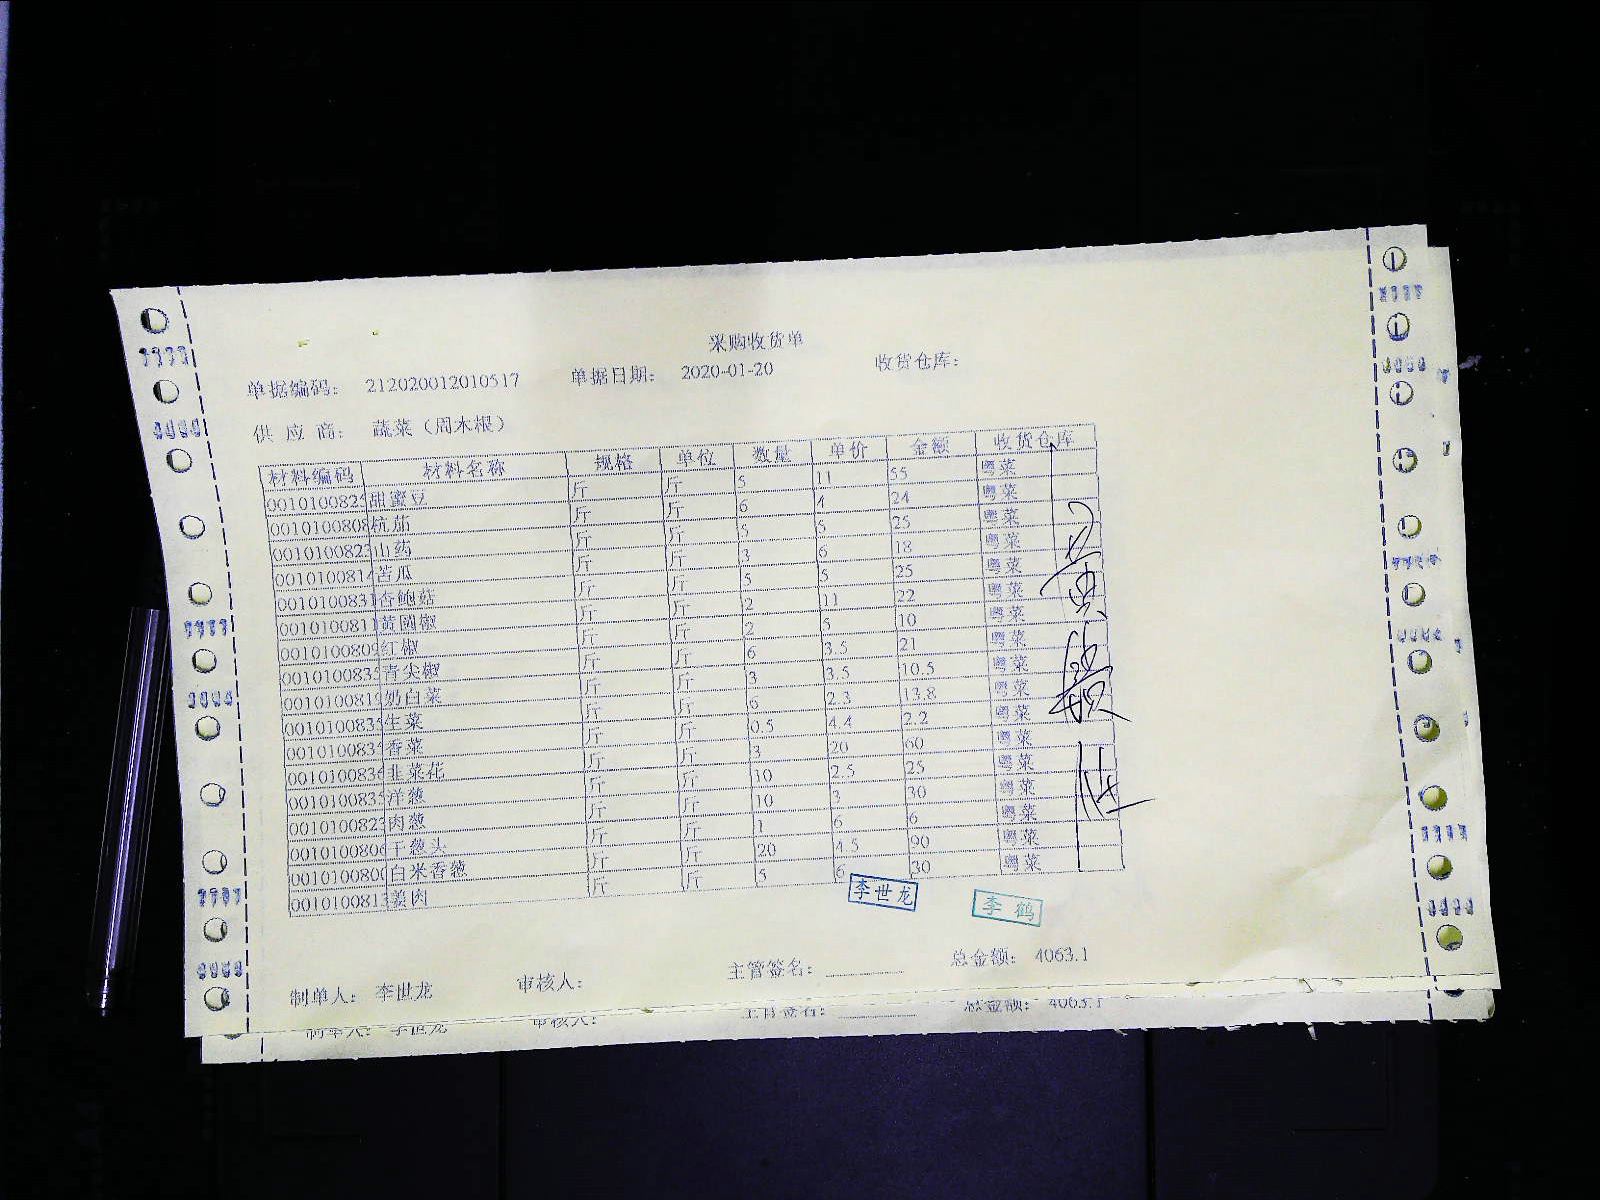 采购收货单
单据编码： 212020012010517 单据日期： 2020-01-20 收货仓库：
供 应 商： 蔬菜（周木根）
材料编码 材料名称 规格 单位 数量 单价 金额 收货仓库
0010100825 甜蜜豆 斤 斤 5 11 55 粤菜
0010100808 杭茄 斤 斤 6 4 24 粤菜
0010100823 山药 斤 斤 5 5 25 粤菜
0010100814 苦瓜 斤 斤 3 6 18 粤菜
0010100831 杏鲍菇 斤 斤 5 5 25 粤菜
0010100811 黄圆椒 斤 斤 2 11 22 粤菜
0010100809 红椒 斤 斤 2 5 10 粤菜
0010100835 青尖椒 斤 斤 6 3.5 21 粤菜
0010100819 奶白菜 斤 斤 3 3.5 10.5 粤菜
0010100835 生菜 斤 斤 6 2.3 13.8 粤菜
001010083 香菜 斤 斤 0.5 4.4 2.2 粤菜
0010100836 韭菜花 斤 斤 3 20 60 粤菜
0010100835 洋葱 斤 斤 10 2.5 25 粤菜
0010100823 肉葱 斤 斤 10 3 30 粤菜
0010100806 干葱头 斤 斤 1 6 6 粤菜
0010100800 白米香葱 斤 斤 20 4.5 90 粤菜
0010100813 姜肉 斤 斤 5 6 30 粤菜
李世龙 李鹤
制单人： 李世龙 审核人： 主管签名： 总金额： 4063.1
制单人： 李世龙 审核人： 主管签名： 总金额： 4063.1